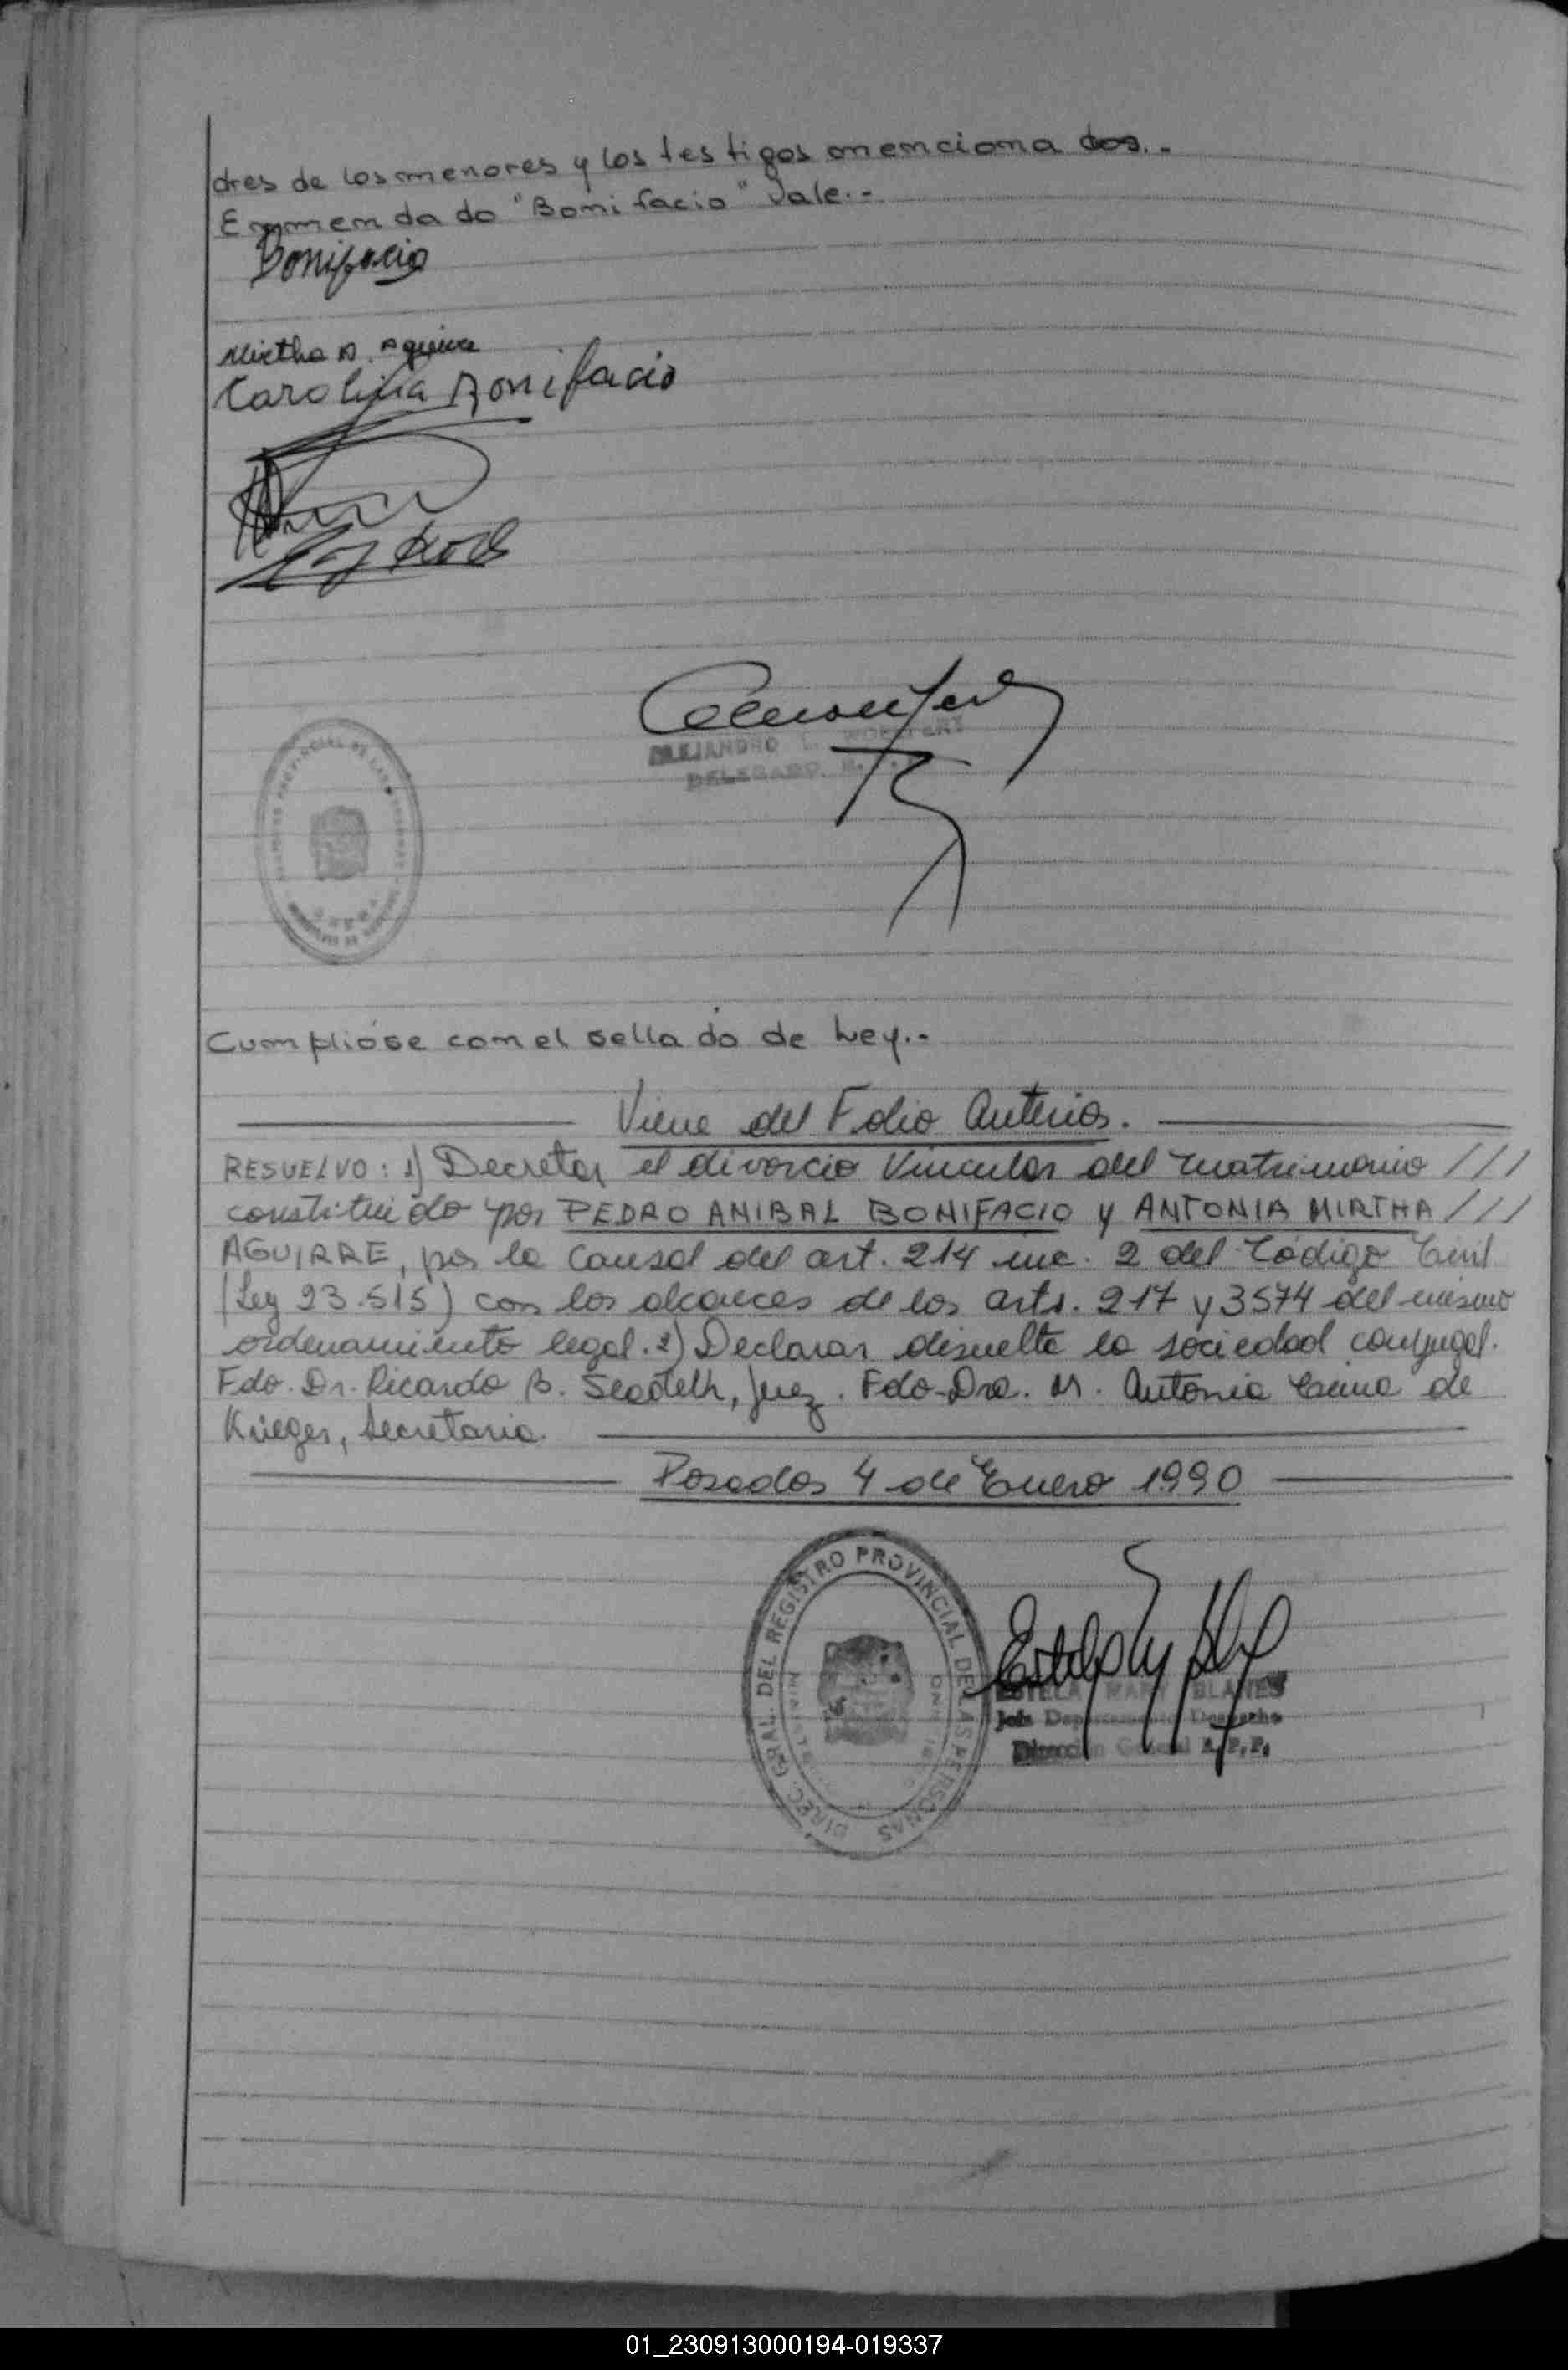 dres de los menores y los testigos menciona dos.-
Enmenda do "Bonifacio" Vale.-
Bonifacio
Mirtha A. Aguirre
Carolina Bonifacio
ALEJANDRO L.
DELEGADO R.
Cumplióse con el sella do de Ley.-
Viene del Folio Anterior.
RESUELVO: 1) Decretar el divorcio Vincular del matrimonio ///
constituido por PEDRO ANIBAL BONIFACIO y ANTONIA MIRTHA ///
AGUIRRE, por la Causal del art. 214 inc. 2 del Código Civil
(Ley 23.515) con los alcances de los arts. 217 y 3574 del mismo
ordenamiento legal. 2) Declarar disuelta la sociedad conyugal.
Fdo. Dr. Ricardo B. Juez. Fdo-Dra. M. Antonia de
Krieger, Secretaria.
Posadas 4 de Enero 1990
DIREC. GRAL. DEL REGISTRO PROVINCIAL DE LAS PERSONAS
ESTELA MARY BLANES
Jefa Departamento Despacho
Dirección General R.P.P.
01_230913000194-019337